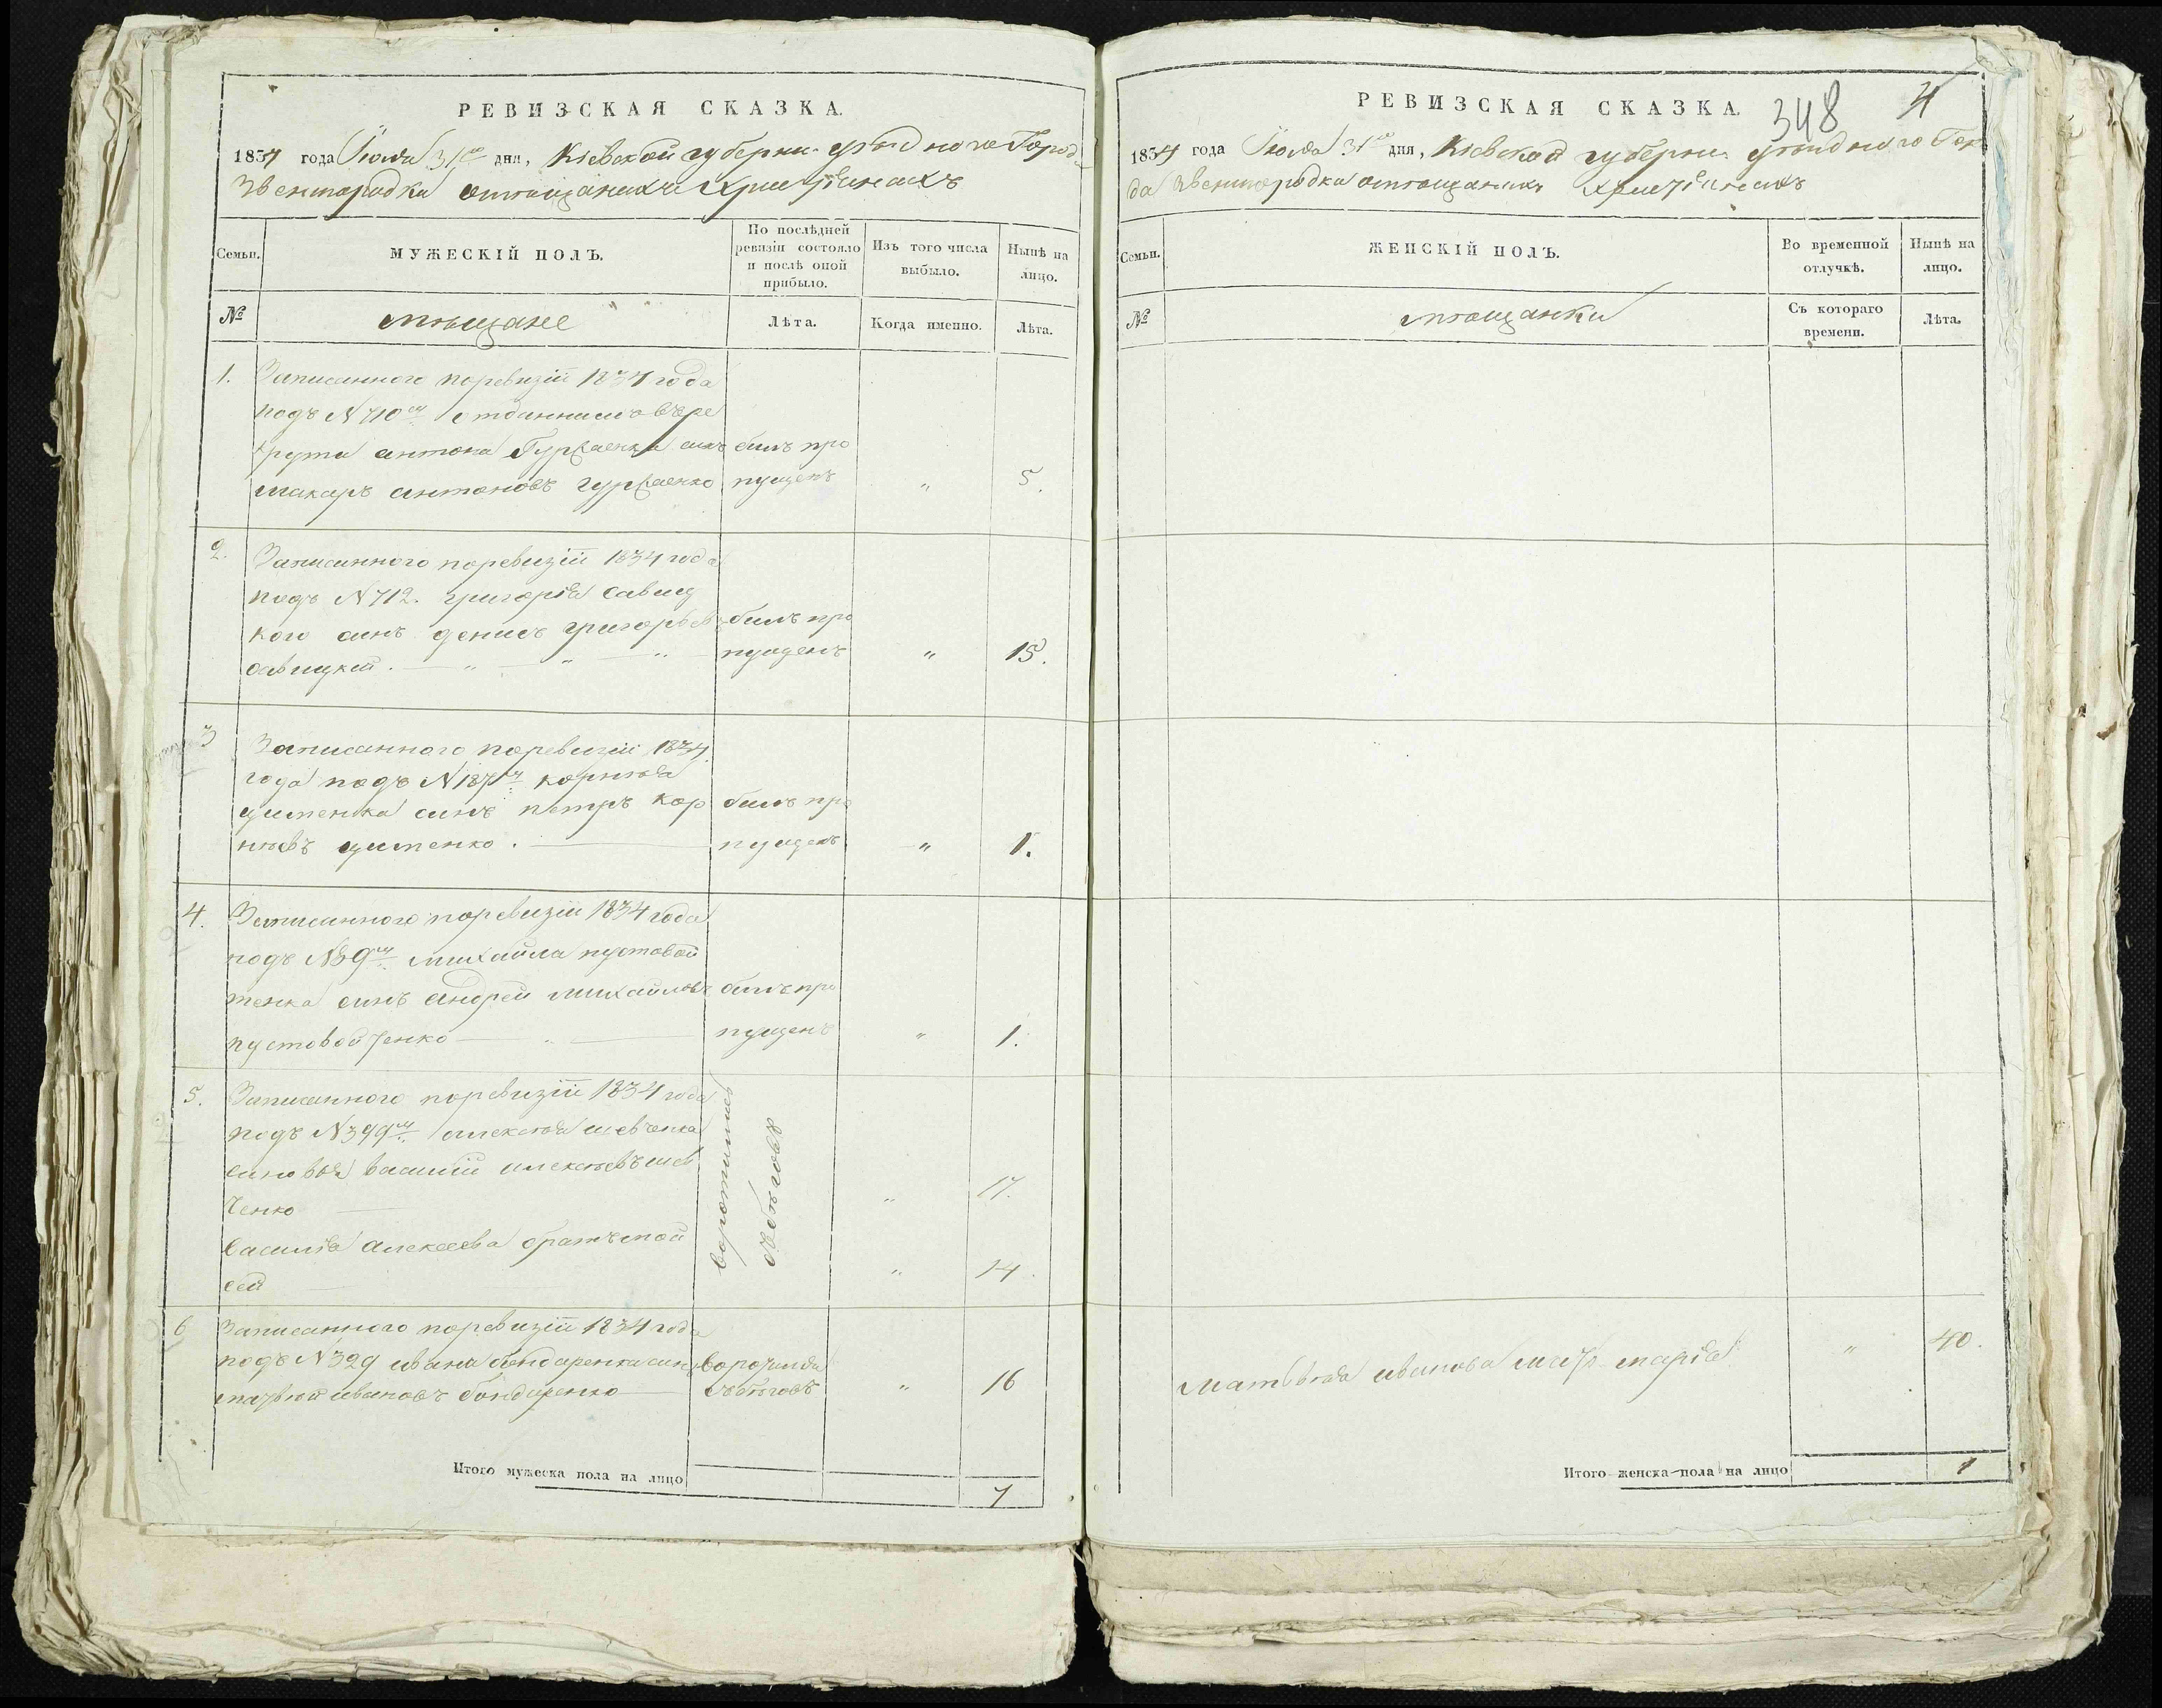 РЕВИЗСКАЯ СКАЗКА.
1834 года Июля 31го дня, Кіевской губерни уѣздного Города
Звенигородки омѣщанахъ Христіянахъ
Семьи.
МУЖЕСКІЙ ПОЛЪ.
По послѣдней ревизіи состояло и послѣ оной прибыло.
Изъ того числа выбыло.
Нынѣ на лицо.
№
мѣщане
Лѣта.
Когда именно.
Лѣта.
1. Записанного поревизіи 1834 года
подъ №710м отданнимъ въре
крути антона синъ билъ про
макаръ антоновъ пущенъ „ 5.
2. Записанного поревизіи 1834 года
подъ №712. григорія савиц
кого синъ денисъ григорьевъ билъ про
савицкий. „ „ „ пущенъ „ 15.
3 Записанного поревизіи 1834
года подъ №187м корнѣя
синъ петръ кор билъ про
нѣевъ пущенъ „ 1.
4. Записанного поревизіи 1834 года
подъ №39м михайла пустовой
тенка синъ андрей михайловъ билъ про
пустовойтенко „ пущенъ „ 1.
5. Записанного поревизіи 1834 года
подъ №399м алексѣя шевченка
синовья василій алексѣевъ шев
ченко „ 17.
василія алексеева братъ мой
сей „ 14.
воротились
зъбѣговъ
6 Записанного поревизіи 1834 года
подъ №329 ивана бондаренка синъ воротился
матвѣй ивановъ бондаренко зъбѣговъ „ 16
Итого мужеска пола на лицо
7
РЕВИЗСКАЯ СКАЗКА.
348
4
1834 года Июля 31го дня, Кіевской губерни уѣздного Горо
да Звенигородки омѣщанахъ Христіянахъ
Семьи.
ЖЕНСКІЙ ПОЛЪ.
Во временной отлучкѣ.
Нынѣ на лицо.
№
мѣщанки
Съ котораго времени.
Лѣта.
Матвѣя иванова мать марія „ 40.
Итого женска пола на лицо
1